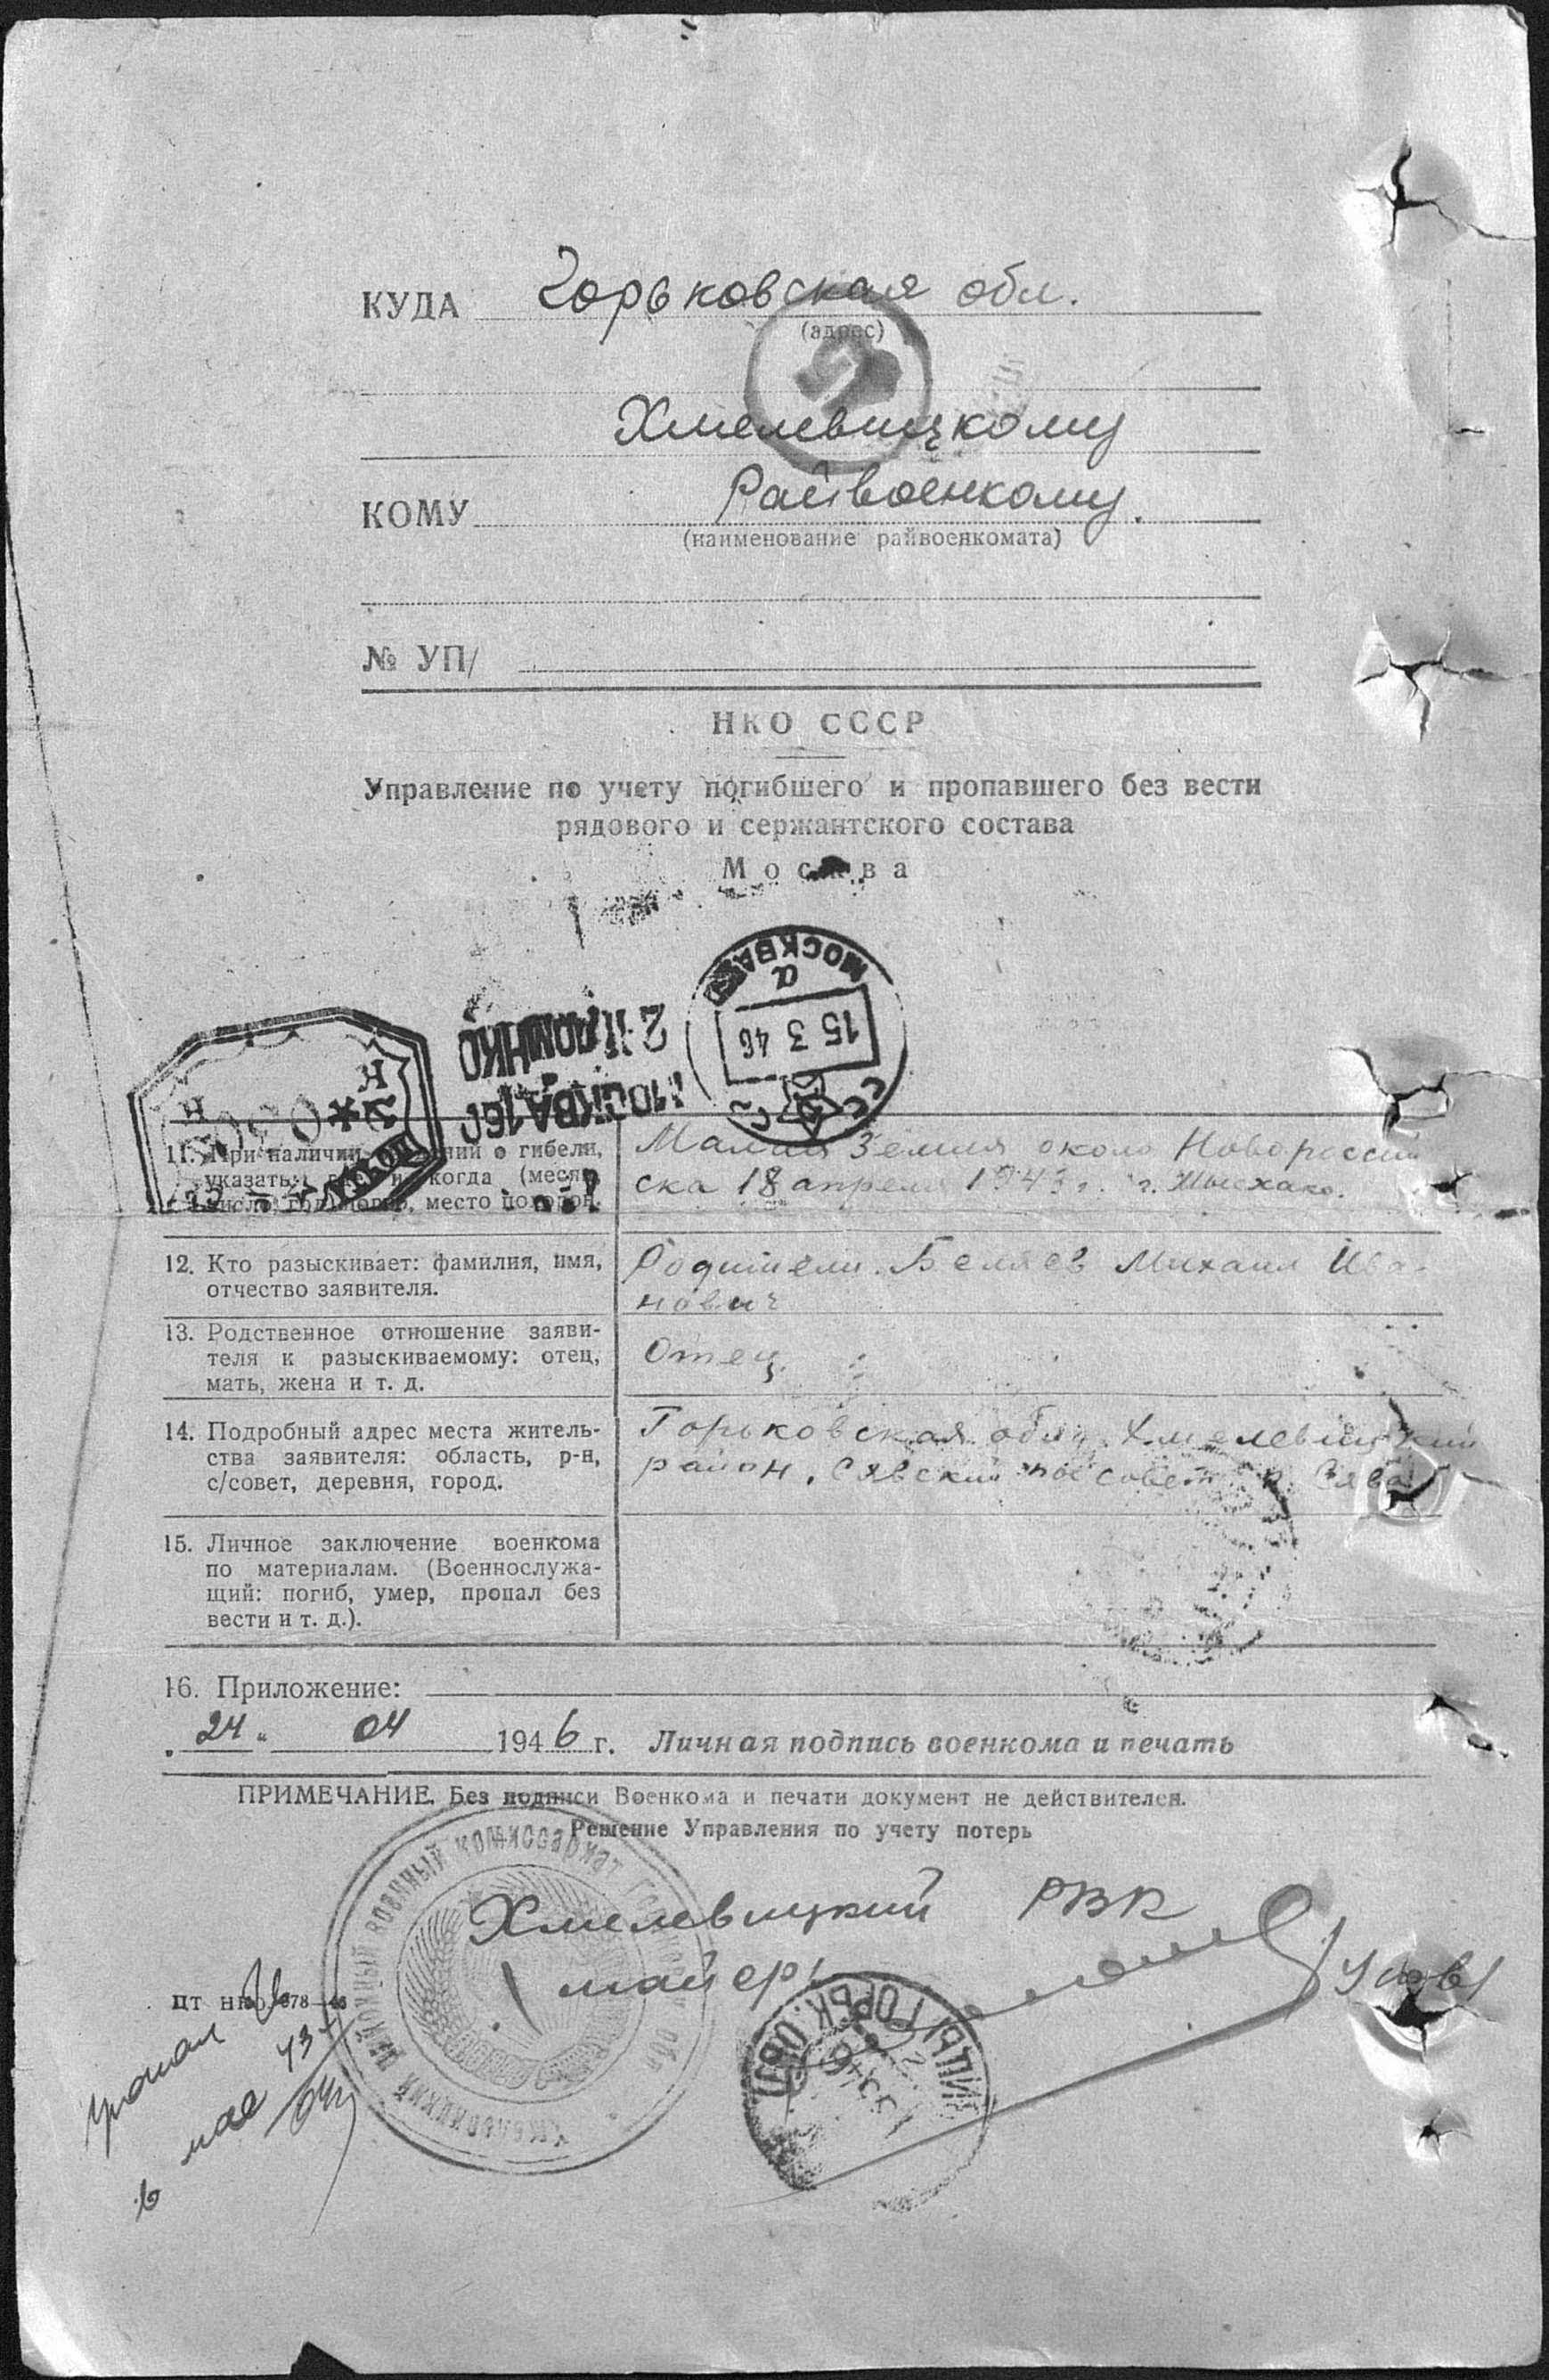 КУДА Горьковская обл.
(адрес)
Хмелевицкому
КОМУ Райвоенкому.
(наименование райвоенкомата)
№ УП/
НКО СССР
Управление по учету погибшего и пропавшего без вести
рядового и сержантского состава
Москва
МОСКВА
а
15 3 46
СССР
2-Й ДОМ НКО
МОСКВА
11. При наличии сведений о гибели,
указать: где и когда (месяц,
число, год) погиб, место похорон.
Малая Земля около Новороссий
ска 18 апреля 1943 г. г. Мысхако.
12. Кто разыскивает: фамилия, имя,
отчество заявителя.
Родители. Беляев Михаил Ива-
нович
13. Родственное отношение заяви-
теля к разыскиваемому: отец,
мать, жена и т. д.
Отец
14. Подробный адрес места житель-
ства заявителя: область, р-н,
с/совет, деревня, город.
Горьковская обл. Хмелевицкий
район. Сявский пос совет п. Сява
15. Личное заключение военкома
по материалам. (Военнослужа-
щий: погиб, умер, пропал без
вести и т. д.).
16. Приложение:
„24“ 04 1946 г. Личная подпись военкома и печать
ПРИМЕЧАНИЕ. Без подписи Военкома и печати документ не действителен.
Решение Управления по учету потерь
Хмелевицкий РВК
майор
ХМЕЛЕВИЦКИЙ РАЙОННЫЙ ВОЕННЫЙ КОМИССАРИАТ
ГОРЬК. ОБЛ.
ЦТ НКО
пропал б/в
в мае 43 г